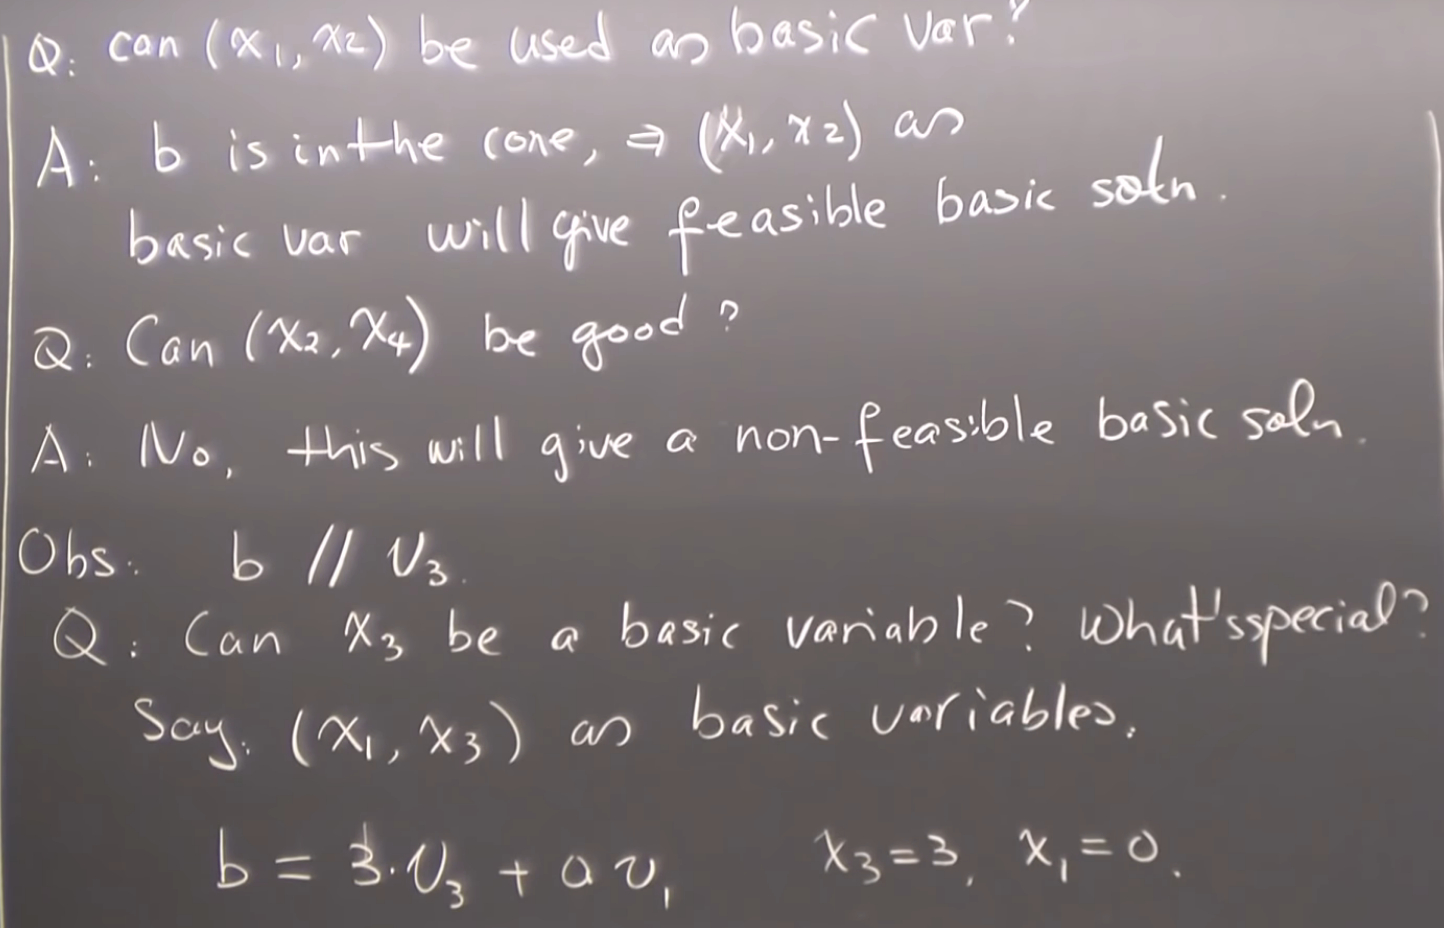 Q: can (x₁, x₂) be used as basic var?
A: b is in the cone, ⇒ (x₁, x₂) as
basic var will give feasible basic soln.
Q: Can (x₂, x₄) be good?
A: No, this will give a non-feasible basic soln.
Obs: b // v₃.
Q: Can x₃ be a basic variable? What's special?
Say: (x₁, x₃) as basic variables.
b = 3·v₃ + 0 v₁ x₃=3, x₁=0.